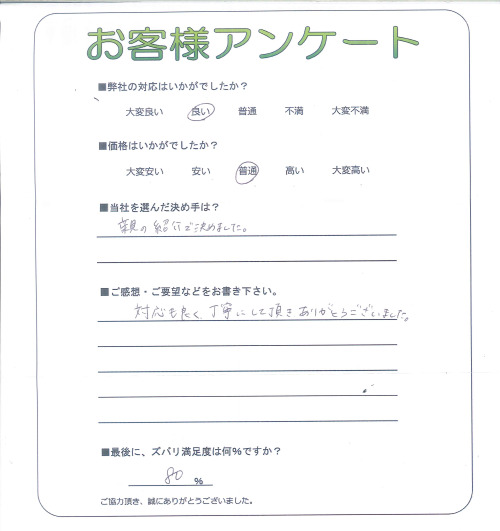 お客様アンケート
■弊社の対応はいかがでしたか？
大変良い 良い 普通 不満 大変不満
■価格はいかがでしたか？
大変安い 安い 普通 高い 大変高い
■当社を選んだ決め手は？
親の紹介で決めました。
■ご感想・ご要望などをお書き下さい。
対応も良く、丁寧にして頂きありがとうございました。
■最後に、ズバリ満足度は何%ですか？
80 %
ご協力頂き、誠にありがとうございました。